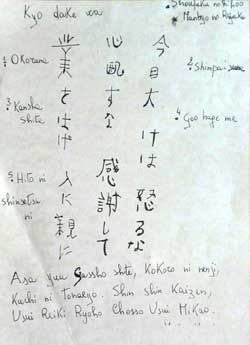 Kyo dake wa
Shoufuku no hihoo
Manbyo no Reijaku
1. Okoruna
2. Shimpai suna
3. Kansha shite
4. Goo hage me
5. Hito ni shinsetsu ni
今日太けは 怒るな
心配すな 感謝して
業をはげ 人に親に
Asa yuu Gassho shite, Kokoro ni nenji,
Kuchi ni Tonaeyo. Shin shin Kaizen,
Usui Reiki Ryoho Chosso Usui Mikao.